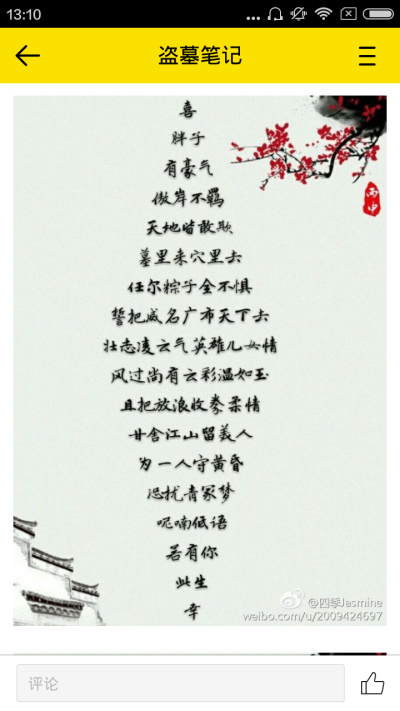 13:10
盗墓笔记
喜
胖子
有豪气
傲岸不羁
天地皆敢欺
墓里来穴里去
任尔粽子全不惧
誓把威名广布天下去
壮志凌云气英雄儿女情
风过尚有云彩温如玉
且把放浪收拳柔情
甘舍江山留美人
为一人守黄昏
恐扰青冢梦
呢喃低语
若有你
此生
幸
丙申
@四季Jasmine
weibo.com/u/2009424697
评论